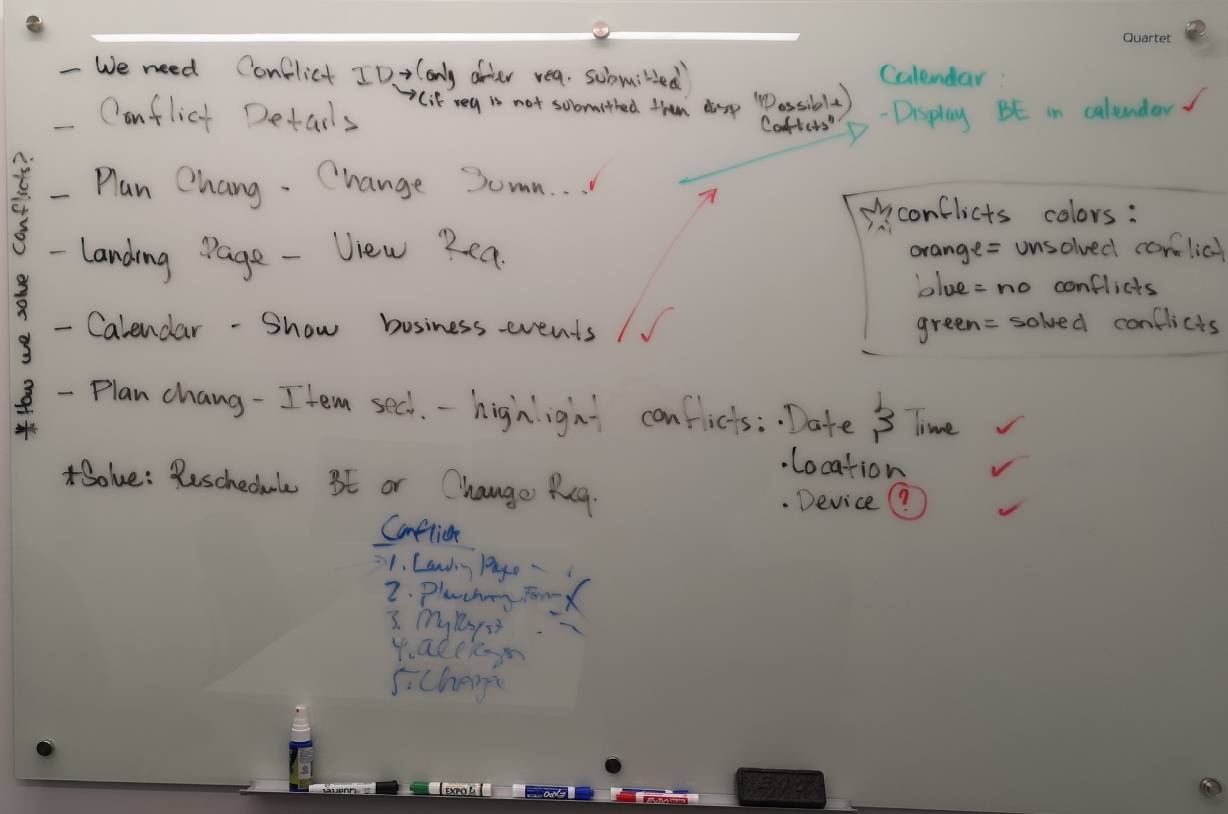 Quartet
- We need Conflict ID → (only after req. submitted)
→ (if req is not submitted then disp "Possible Conflicts")
- Conflict Details
- Plan Chang - Change Summ... ✓
- Landing Page - View Req.
- Calendar - Show business events ✓
- Plan chang - Item sect. - highlight conflicts: · Date & Time ✓
· Location ✓
· Device ? ✓
*Solve: Reschedule BE or Change Req.
* How we solve conflicts?
Calendar:
- Display BE in calendar ✓
conflicts colors:
orange = unsolved conflict
blue = no conflicts
green = solved conflicts
1. Landing Page
2. Planchange Form
3.
4.
5. Change
EXPO
EXPO